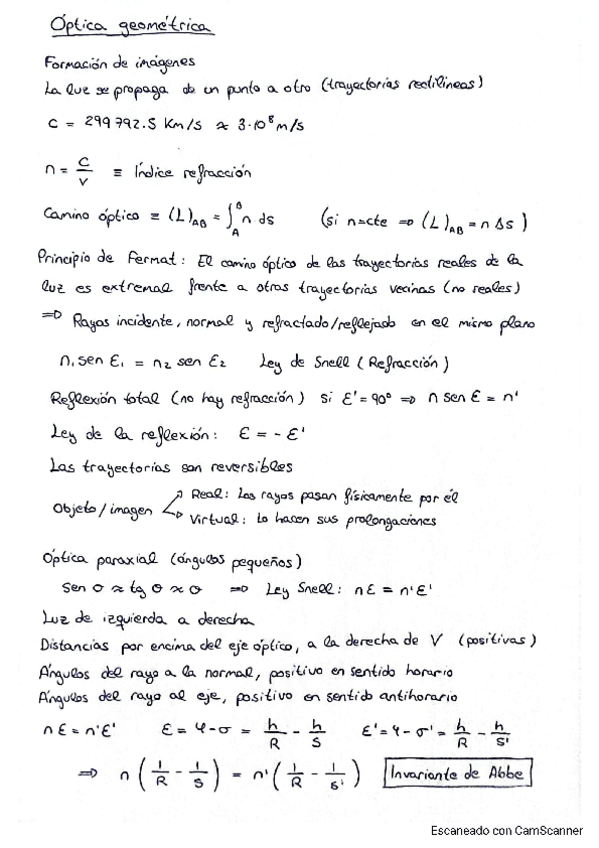 Óptica geométrica
Formación de imágenes
La luz se propaga de un punto a otro (trayectorias rectilíneas)
c = 299792.5 Km/s ≈ 3·10⁸ m/s
n = c/v ≡ Índice refracción
Camino óptico ≡ (L)_AB = ∫_A^B n ds (si n=cte ⇒ (L)_AB = n Δs)
Principio de Fermat: El camino óptico de las trayectorias reales de la
luz es extremal frente a otras trayectorias vecinas (no reales)
⇒ Rayos incidente, normal y refractado/reflejado en el mismo plano
n₁ sen ε₁ = n₂ sen ε₂ Ley de Snell (Refracción)
Reflexión total (no hay refracción) si ε' = 90º ⇒ n sen ε = n'
Ley de la reflexión: ε = - ε'
Las trayectorias son reversibles
Objeto/imagen
Real: Los rayos pasan físicamente por él
Virtual: Lo hacen sus prolongaciones
Óptica paraxial (ángulos pequeños)
Sen σ ≈ tg σ ≈ σ ⇒ Ley Snell: nε = n'ε'
Luz de izquierda a derecha
Distancias por encima del eje óptico, a la derecha de V (positivas)
Ángulos del rayo a la normal, positivo en sentido horario
Ángulos del rayo al eje, positivo en sentido antihorario
nε = n'ε' ε = φ-σ = h/R - h/s ε' = φ-σ' = h/R - h/s'
⇒ n(1/R - 1/s) = n'(1/R - 1/s') Invariante de Abbe
Escaneado con CamScanner